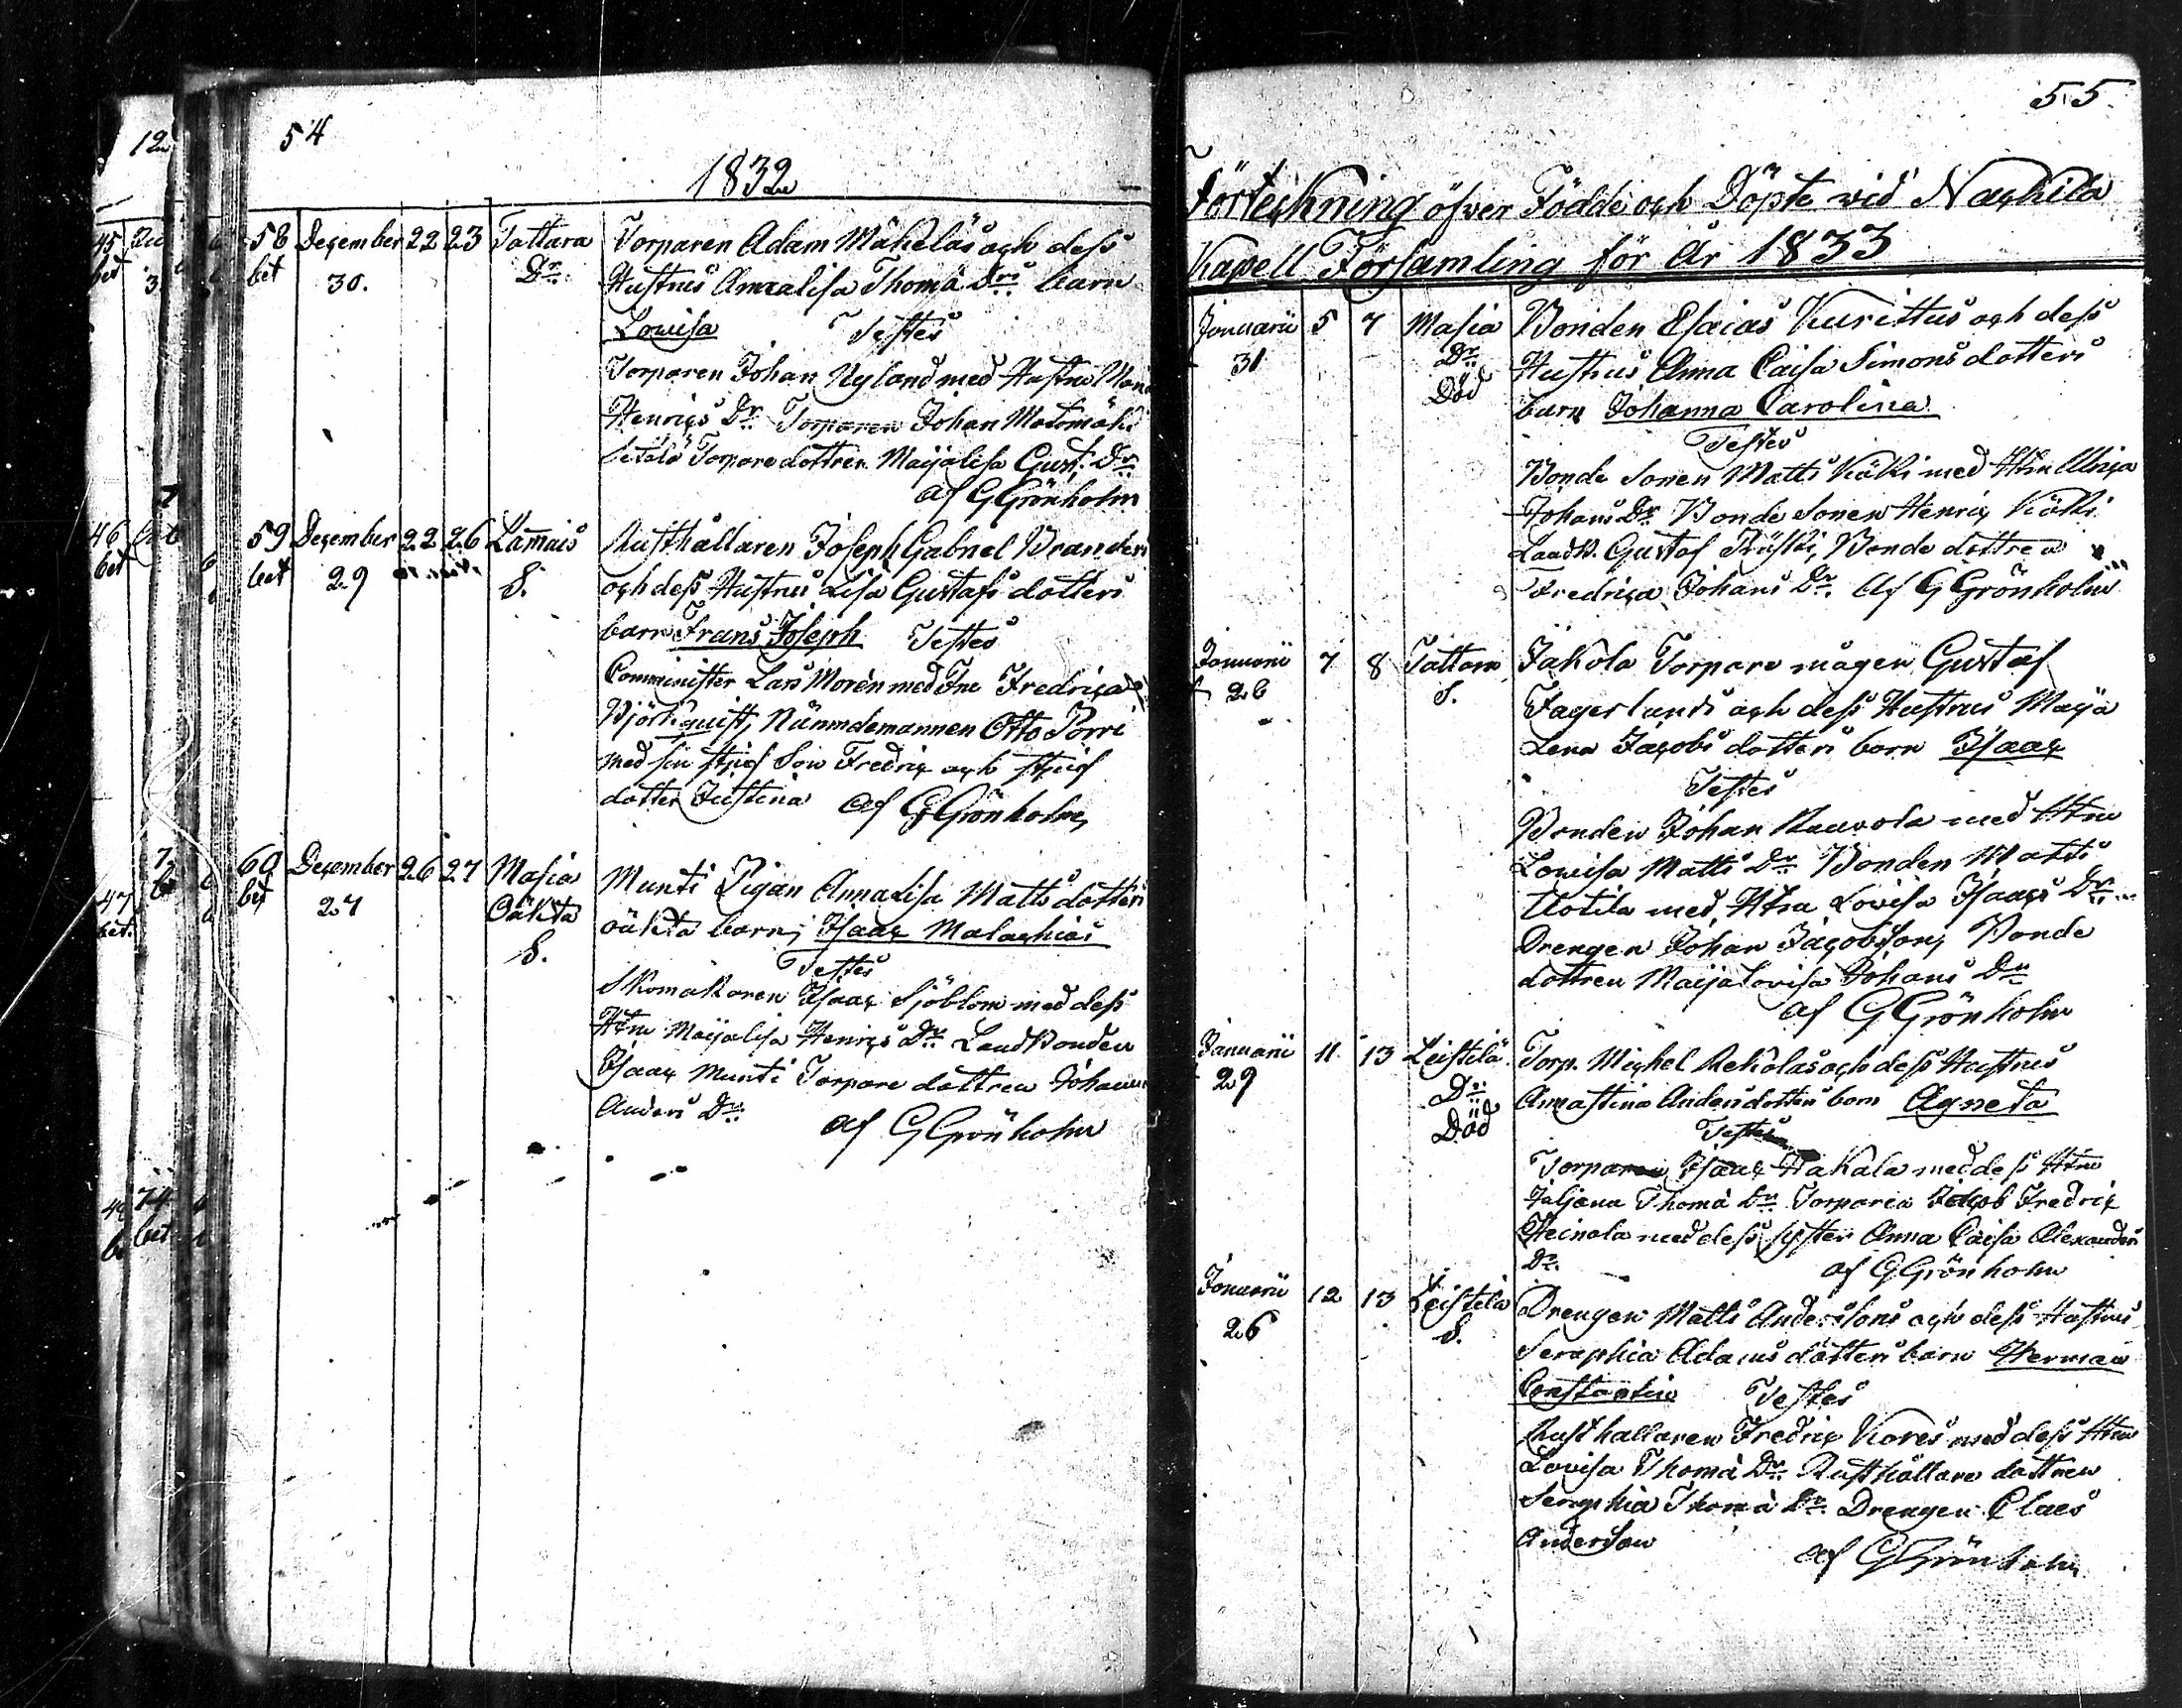 54
1832
58 December 22 23 Tattara Torparen Adam Mäkeläs och dess
bet 30. Dr. Hustrus Annalisa Thomä Drs barn
Lowisa Testes
Torparen Johan Nyland med Hustru
Henrics Dr. Torparen Johan
Torpare dottren Maijalisa Gust. Dr.
af G Grönholm
59 December 22 26 Lamais Rusthållaren Joseph Gabriel Branders
bet 29 S. och dess Hustrus Lisa Gustafs dotters
barn Frans Joseph Testes
Comminister Lars Morén med Fru Fredrica
Björkquist, Nämndemannen Otto Porri
med sin stjuf Son Fredric och stjuf
dotter Justina af G Grönholm
60 December 26 27 Masia Munti Pigan Annalisa Matts dotters
bet 27 Oäkta oäkta barn, Isaac Malachias
S. Testes
Skomakaren Isaac Sjöblom med dess
Htru Maijalisa Henrics Dr. Landbonden
Isaac Munti Torpare dottren Johanna
Anders Dr.
af G Grönholm
55
Förteckning öfver Födde och Döpte wid Nackila
Kapell Församling för År 1833
Januarii 5 7 Masia Bonden Esaias Kurittus och dess
31 Dr. Hustrus Anna Caisa Simons dotters
Död barn Johanna Carolina
Testes
Bonde Sonen Matts Käki med Htru Ulrica
Johans Dr. Bonde Sonen Henric Käki
Landb. Gustaf Bonde dottren
Fredrica Johans Dr. Af G Grönholm
Januarii 7 8 Tattara Jakola Torpare mågen Gustaf
26 S. Fagerlunds och dess Hustrus Maija
Lena Jacobs dotters barn Isaac
Testes
Bonden Johan Knuvola med Htru
Lowisa Matts Dr. Bonden Matts
Uotila med Htru Lovisa Isaacs Dr.
Drengen Johan Jacobsson, Bonde
dottren Maija Lovisa Johans Dr.
af G Grönholm
Januarii 11 13 Leistilä Torp. Michel Rekolas och dess Hustrus
29 Dr. Annastina Anders dotters barn Agneta
Död Testes
Torparen Isaac Hakala med dess Htru
Juljana Thomä Dr. Torparen Jacob Fredric
Heinola med dess syster Anna Caisa Alexanders
Dr. af G Grönholm
Januarii 12 13 Leistilä Drengen Matts Anderssons och dess Hustrus
26 S. Seraphia Adams dotters barn Herman
Constantin Testes
Rusthållaren Fredric Kores med dess Htru
Lovisa Thomä Dr. Rusthållare dottren
Seraphia Thomä Dr. Drengen Claes
Andersson
af G Grönholm